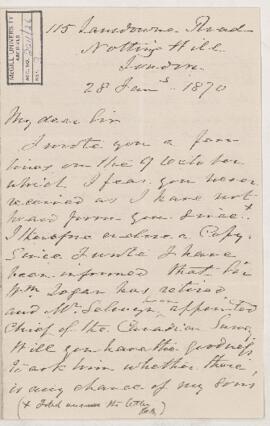 McGILL UNIVERSITY
ARCHIVES
115 Lansdowne Road
Notting Hill
London
28 Jany. 1870
My dear Sir
I wrote you a few
lines on the 9 October
which I fear you never
received as I have not
heard from you since.
I therefore enclose a Copy.
Since I wrote I have
been informed that Sir
Wm. Logan has retired
and Mr. Selwyn been appointed
Chief of the Canadian Survey
Will you have the goodness
to ask him whether there
is any chance of my sons